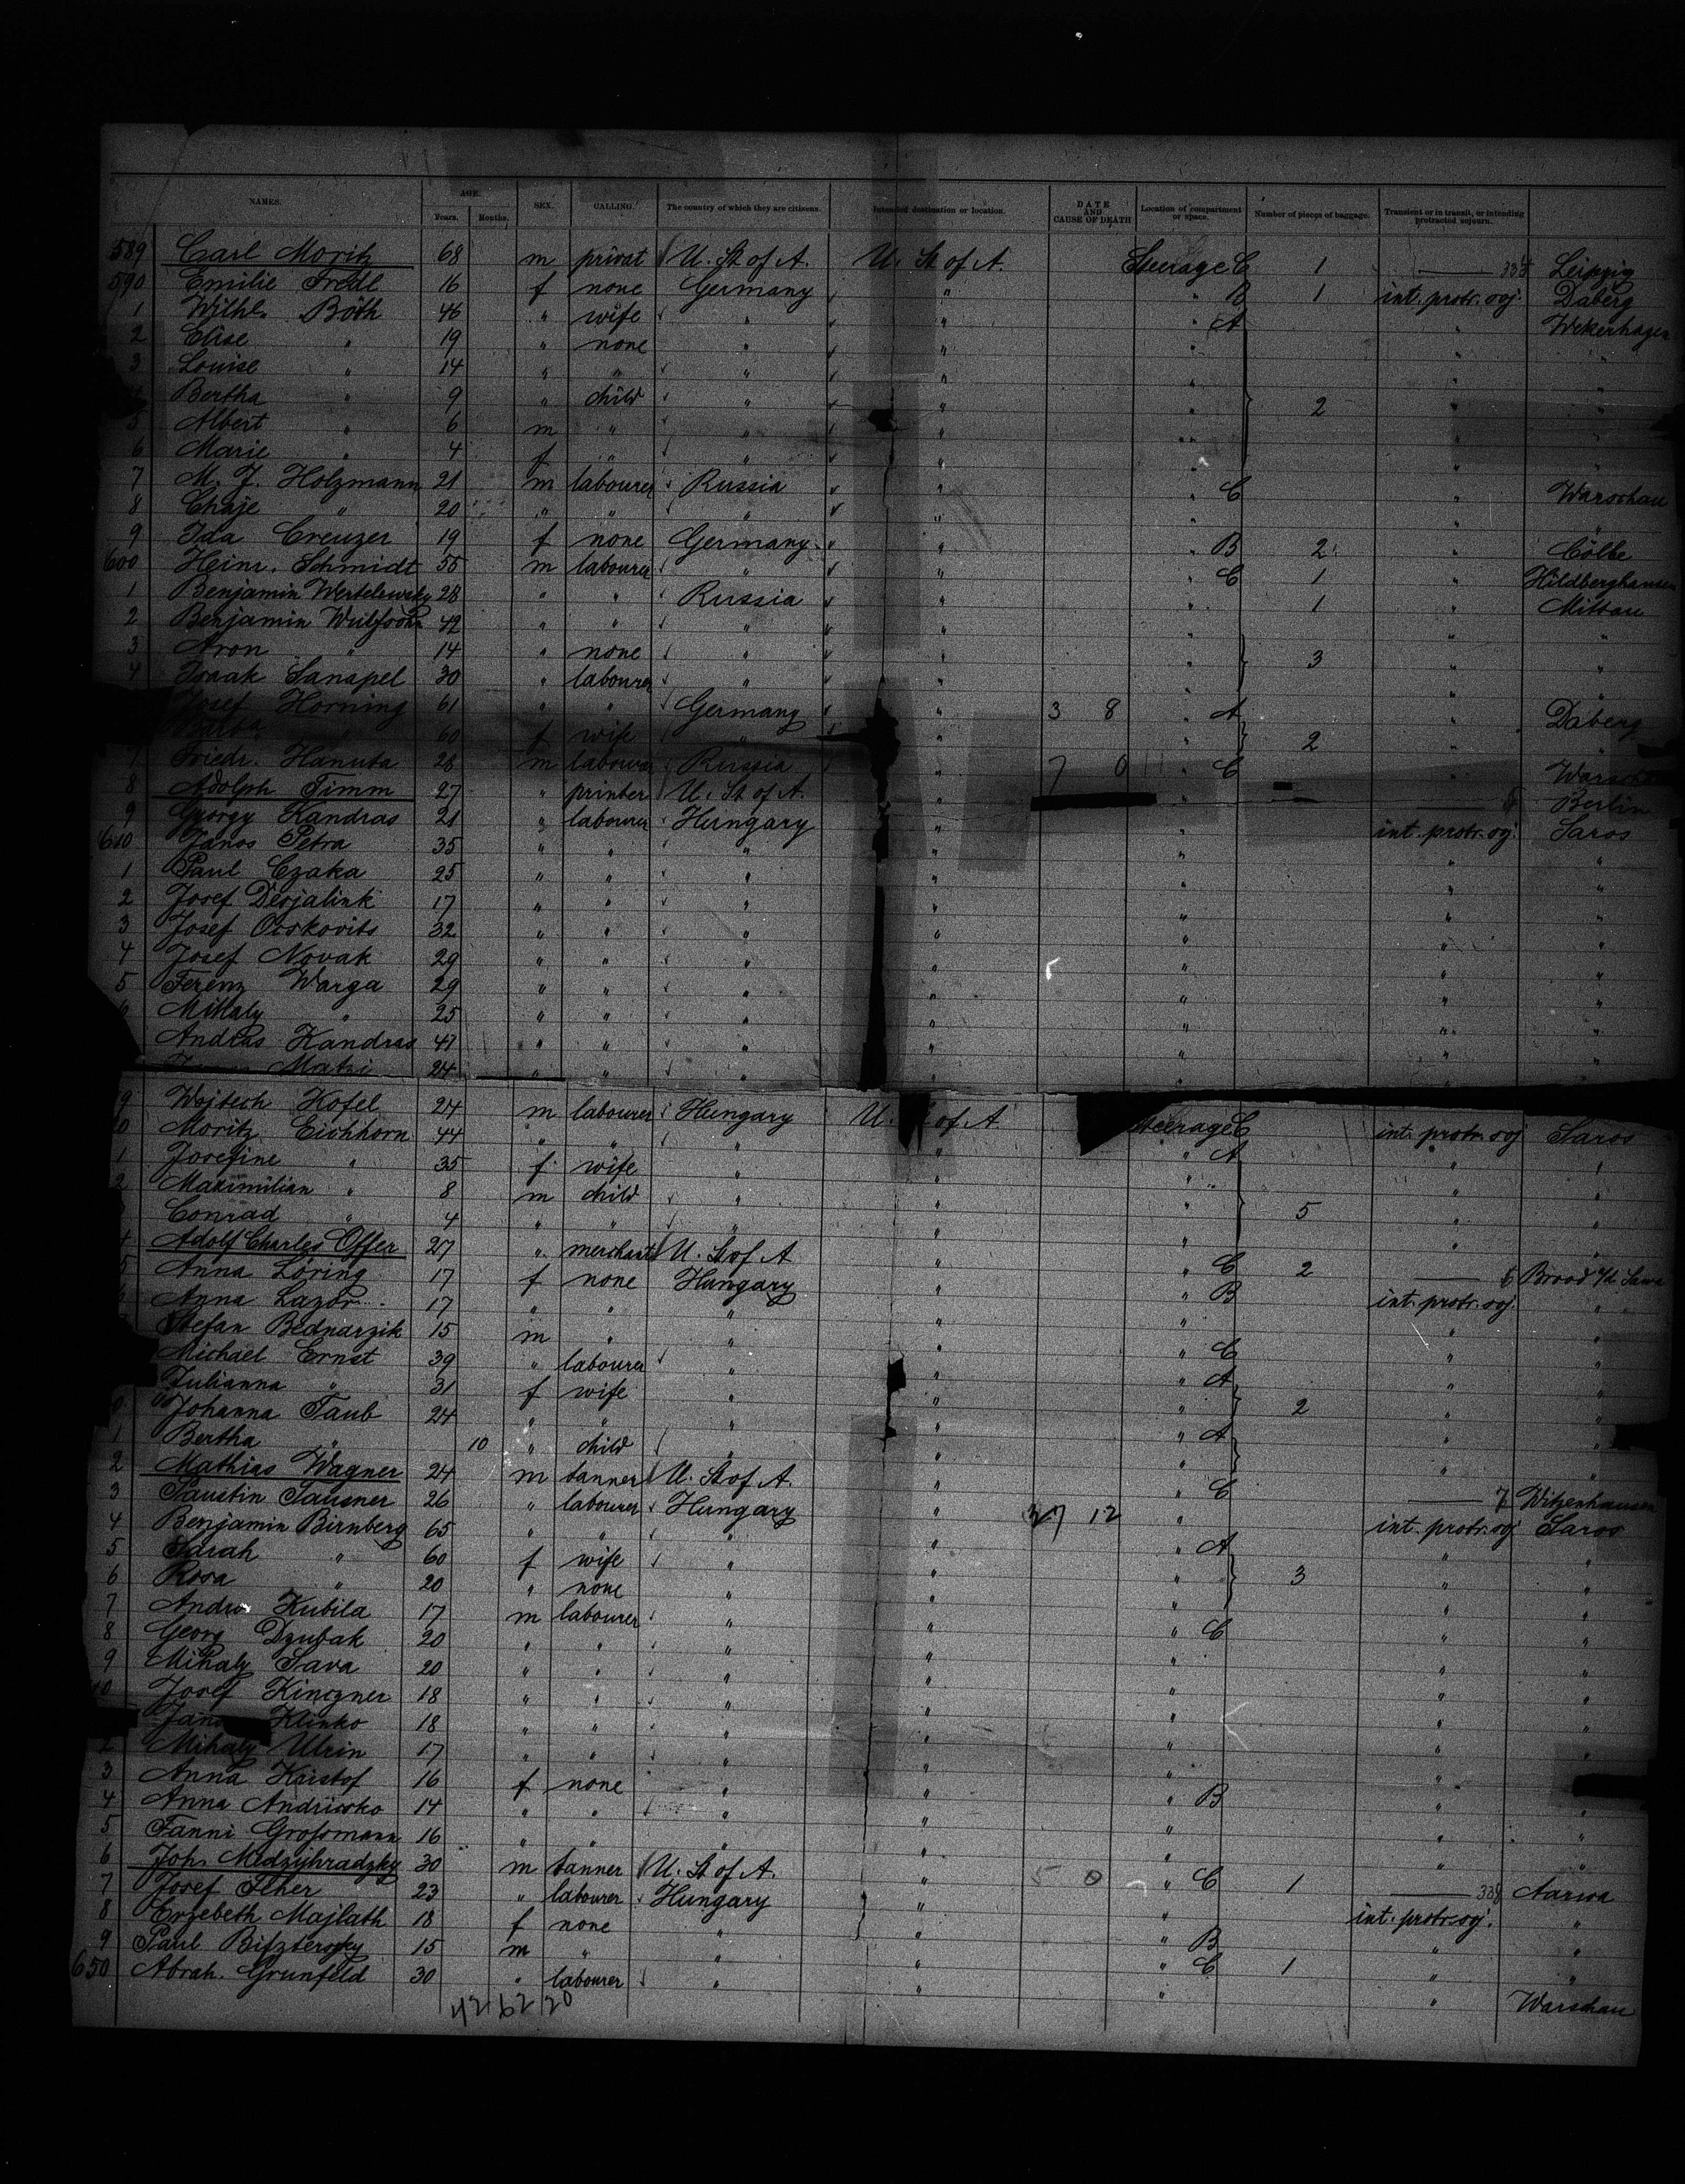 NAMES. AGE. Years. Months. SEX. CALLING. The country of which they are citizens. Intended destination or location. DATE AND CAUSE OF DEATH Location of compartment or space. Number of pieces of baggage. Transient or in transit, or intending protracted sojourn.
589 Carl Moritz 68 m privat U. St of A. U. St of A. Steerage C 1 — 338 Leipzig
590 Emilie Fredl 16 f none Germany " " B 1 int. protr. soj. Daberg
1 Wilhl. Böth 46 " wife " " " A " Wekerhagen
2 Elise " 19 " none " " " " "
3 Louise " 14 " " " " " " "
Bertha " 9 " child " " " 2 " "
5 Albert " 6 m " " " " " "
6 Marie " 4 f " " " " "
7 M. J. Holzmann 21 m labourer Russia " " C " Warschau
8 Chaje " 20 " " " " " " "
9 Ida Creuzer 19 f none Germany " " B 2 " Cölbe
600 Heinr. Schmidt 55 m labourer " " " C 1 " Hildberghausen
1 Benjamin Wertelewsky 28 " " Russia " " 1 " Mittau
2 Benjamin Wulfsohn 42 " " " " " "
3 Aron " 14 " none " " " 3 " "
4 Isaak Sanapel 30 " labourer " " " "
Josef Horning 61 " " Germany " 3 8 " A " Daberg
" 60 f wife " " " 2 " "
7 Friedr. Hanuta 28 m labourer Russia " 7 0 " C "
8 Adolph Timm 27 " printer U. St of A. " " — Berlin
9 György Kandras 21 " labourer Hungary " " int. protr. soj. Saros
610 János Petra 35 " " " " " " "
1 Paul Czaka 25 " " " " " " "
2 Josef Desjalink 17 " " " " " " "
3 Josef Ooskovits 32 " " " " " " "
4 Josef Novak 29 " " " " " " "
5 Ferenz Warga 29 " " " " " " "
6 Mihaly " 25 " " " " " " "
András Kandras 47 " " " " " " "
Matzi 24 " " " "
9 Wojtech Kofel 24 m labourer Hungary U. St of A Steerage C int. protr. soj Saros
0 Moritz Eichhorn 44 " " " " " A " "
1 Josefine " 35 f wife " " " " "
2 Maximilian " 8 m child " " " 5 " "
Conrad " 4 " " " " " " "
4 Adolf Charles Offer 27 " merchant U. St of A " " C 2 — 6 Brood a/d. Sawa
5 Anna Loring 17 f none Hungary " " B int. protr. soj. "
Anna Lazor 17 " " " " " " "
Stefan Bednarzik 15 m " " " " C " "
Michael Ernst 39 " labourer " " " A " "
Julianna " 31 f wife " " " 2 " "
0 Johanna Taub 24 " " " " " A " "
1 Bertha " 10 " child " " " " "
2 Mathias Wagner 24 m tanner U. St of A. " " C — 7 Witzenhausen
3 Faustin Sausner 26 " labourer Hungary " 27 12 " int. protr. soj Saros
4 Benjamin Birnberg 65 " " " " " A " "
5 Sarah " 60 f wife " " " 3 " "
6 Rosa " 20 " none " " " " "
7 Kubila 17 m labourer " " " C " "
8 Georg Dzubak 20 " " " " " " "
9 Mihaly Sava 20 " " " " " " "
Josef Kinczner 18 " " " " " " "
Klinko 18 " " " " " "
2 Mihaly Ulrin 17 " " " " " "
3 Anna Kristof 16 f none " " " B " "
4 Anna Andrisko 14 " " " " " " "
5 Fanni Grossmann 16 " " " " " " "
6 Joh. Medzyhradzky 30 m tanner U. St of A. " 5 0 " C 1 — 338 Aarwa
7 Josef Feher 23 " labourer Hungary " " int. protr. soj. "
8 Erzebeth Majlath 18 f none " " " B " "
9 Paul 15 m " " " " C 1 " "
650 Abrah. Grunfeld 30 " labourer " " " " Warschau
42 62 20